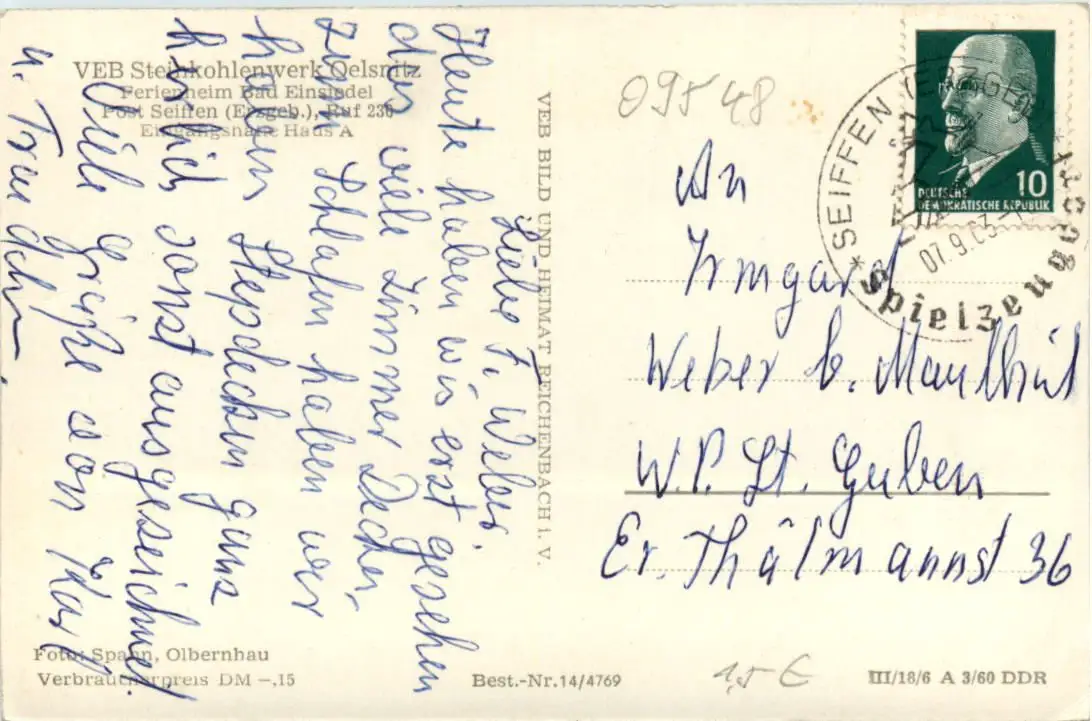 VEB Steinkohlenwerk Oelsnitz
Ferienheim Bad Einsiedel
Post Seiffen (Erzgeb.), Ruf 236
Liebe F. Weber.
Heute haben wir erst gesehen
das viele Zimmer Decken
zum Schlafen haben wir
haben Stepdecken ganz
sonst ausgezeichnet
Viele Grüße von Karl
u. Traudchen.
VEB BILD UND HEIMAT REICHENBACH i. V.
09548
DEUTSCHE
DEMOKRATISCHE REPUBLIK
10
SEIFFEN (ERZGEB)
07.9.63
An
Irmgard
Weber b.
W.P. St. Guben
Er. Thälmannst 36
Foto: Spann, Olbernhau
Verbraucherpreis DM -,15
Best.-Nr. 14/4769
1,5 €
III/18/6 A 3/60 DDR